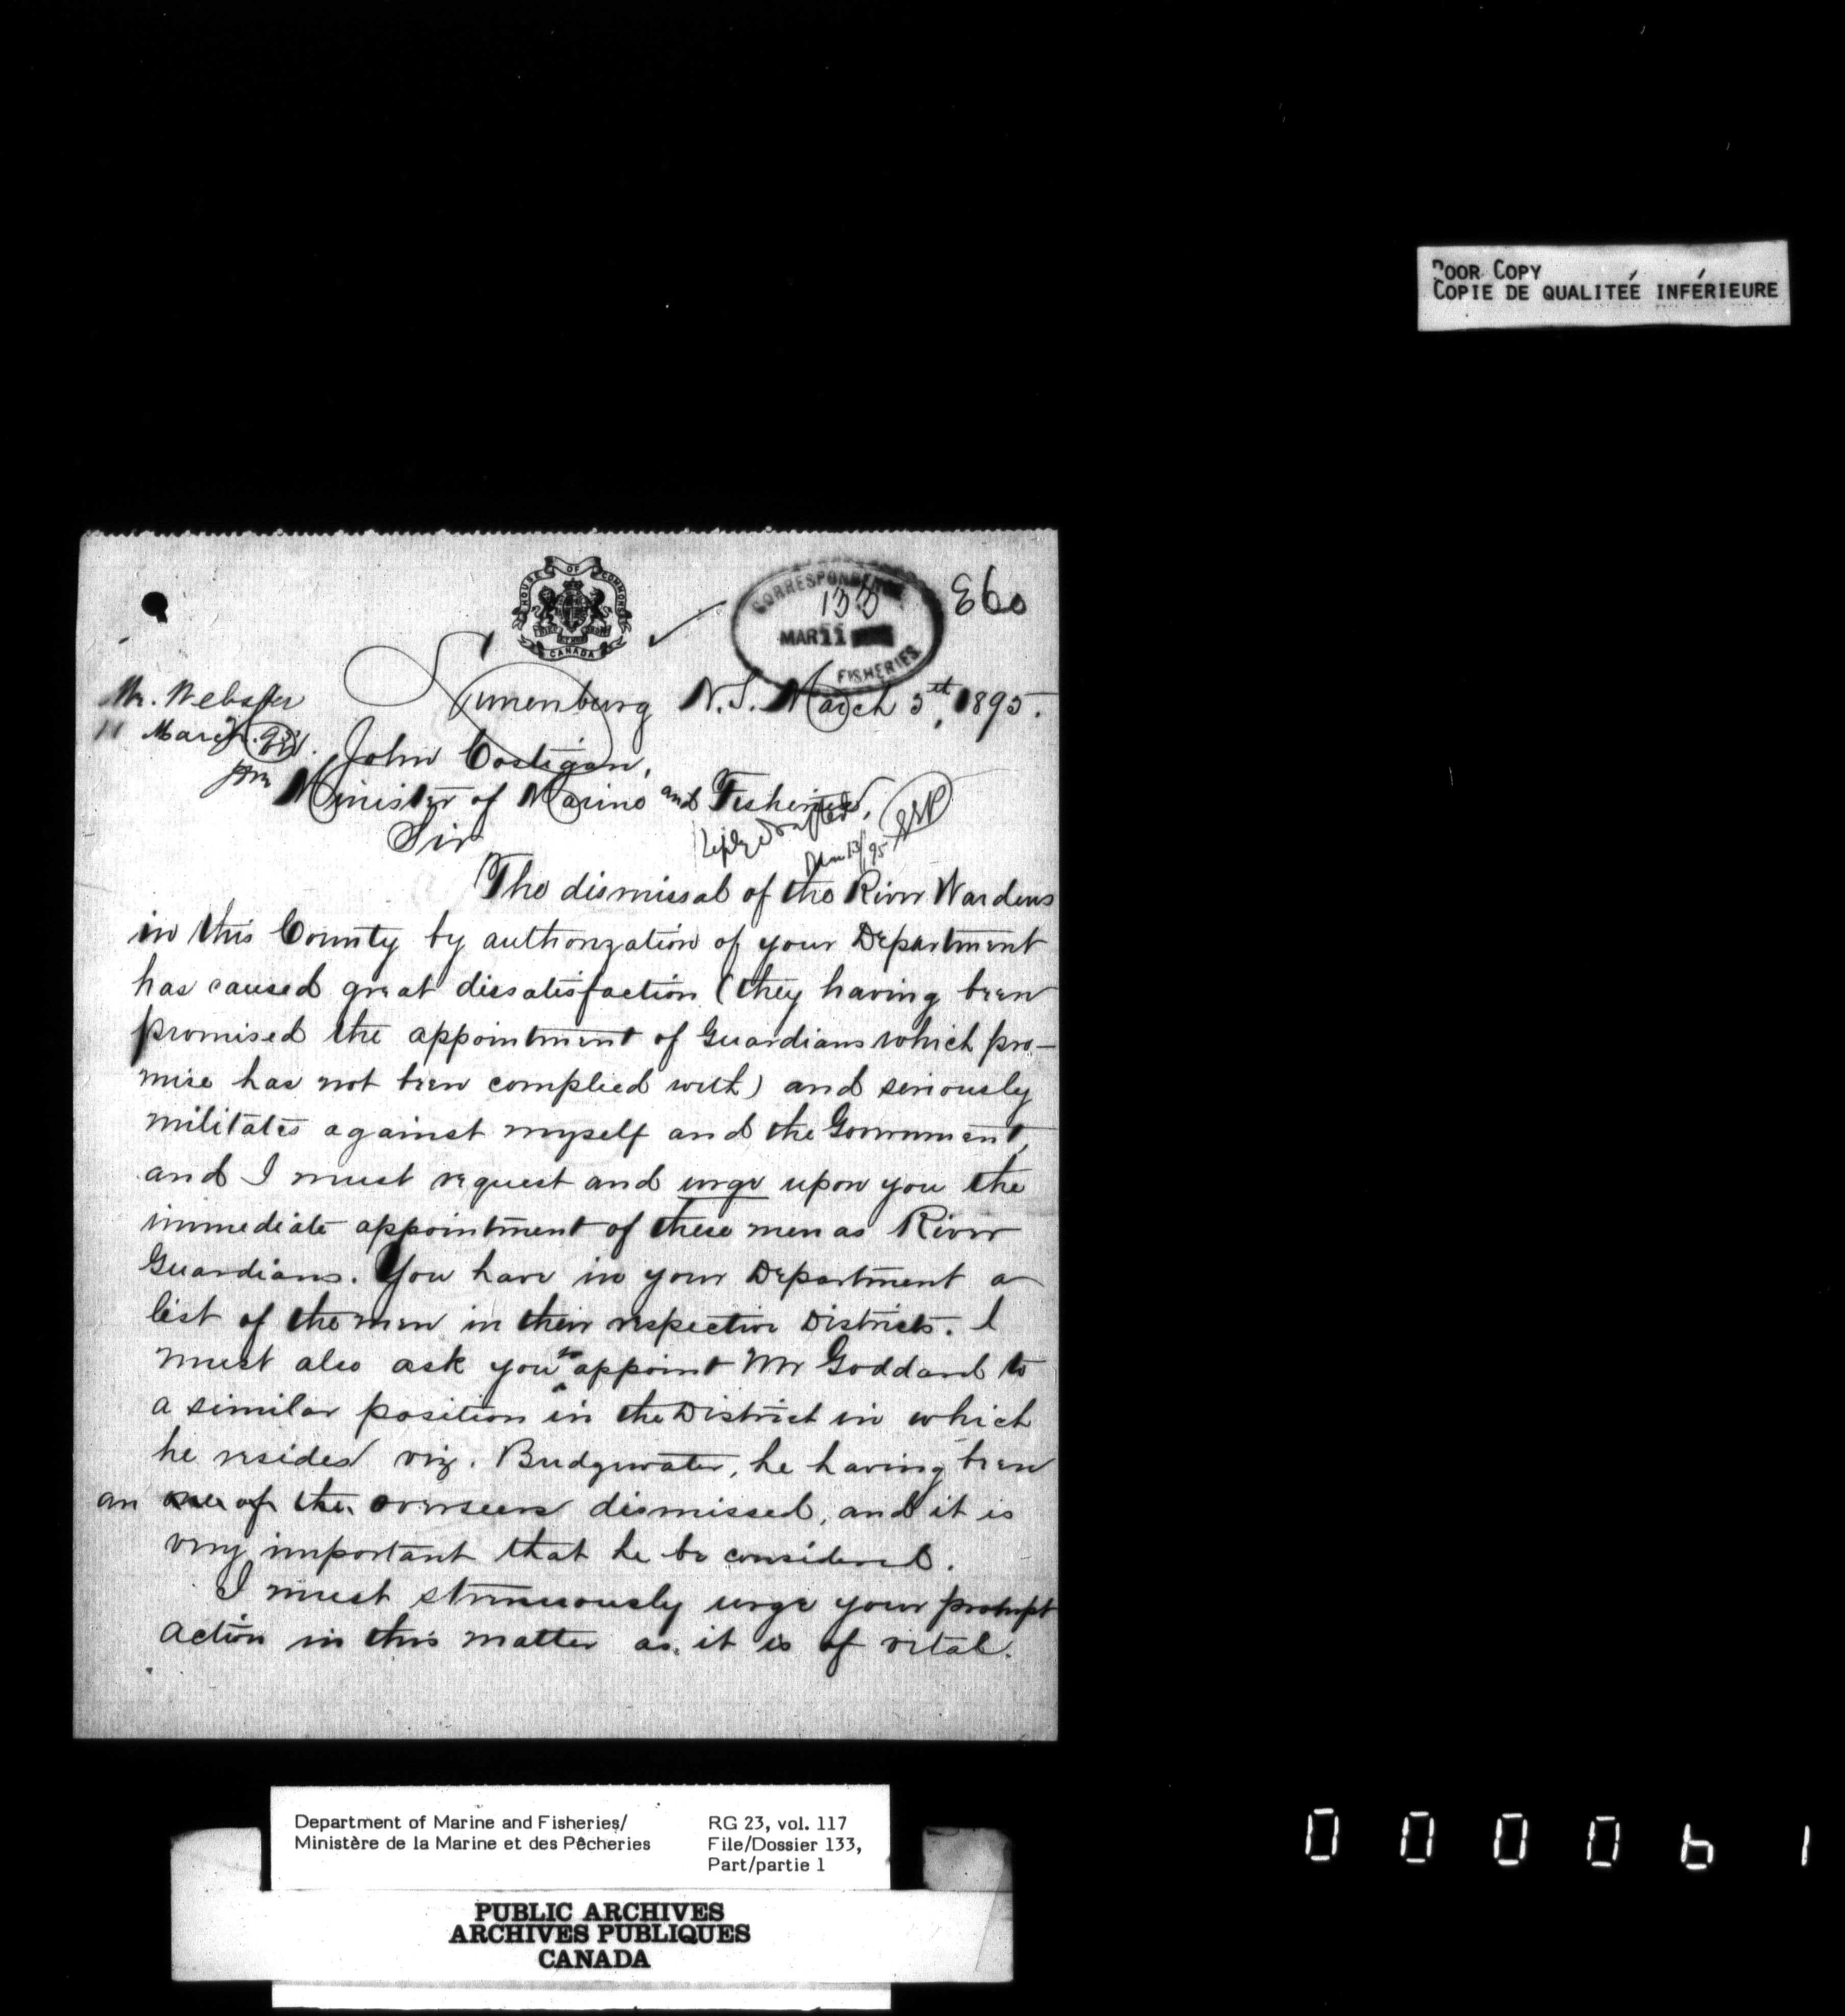 POOR COPY
COPIE DE QUALITEÉ INFÉRIEURE
HOUSE OF COMMONS
CANADA
CORRESPONDENCE
133
MAR 11
FISHERIES
Mr. Webster
11 March 95.
Lunenburg N.S. March 5th, 1895.
John Costigan,
Minister of Marine and Fisheries,
Reply drafted
13/95
Sir
The dismissal of the River Wardens
in this County by authorization of your Department
has caused great dissatisfaction (they having been
promised the appointment of Guardians which pro-
mise has not been complied with) and seriously
militates against myself and the Government,
and I must request and urge upon you the
immediate appointment of these men as River
Guardians. You have in your Department a
list of the men in their respective Districts. I
must also ask you to appoint Mr Goddard to
a similar position in the District in which
he resides viz. Bridgewater, he having been
an one of the overseers dismissed, and it is
very important that he be considered.
I must strenuously urge your prompt
action in this matter as it is of vital
Department of Marine and Fisheries/
Ministère de la Marine et des Pêcheries
RG 23, vol. 117
File/Dossier 133,
Part/partie 1
PUBLIC ARCHIVES
ARCHIVES PUBLIQUES
CANADA
000061